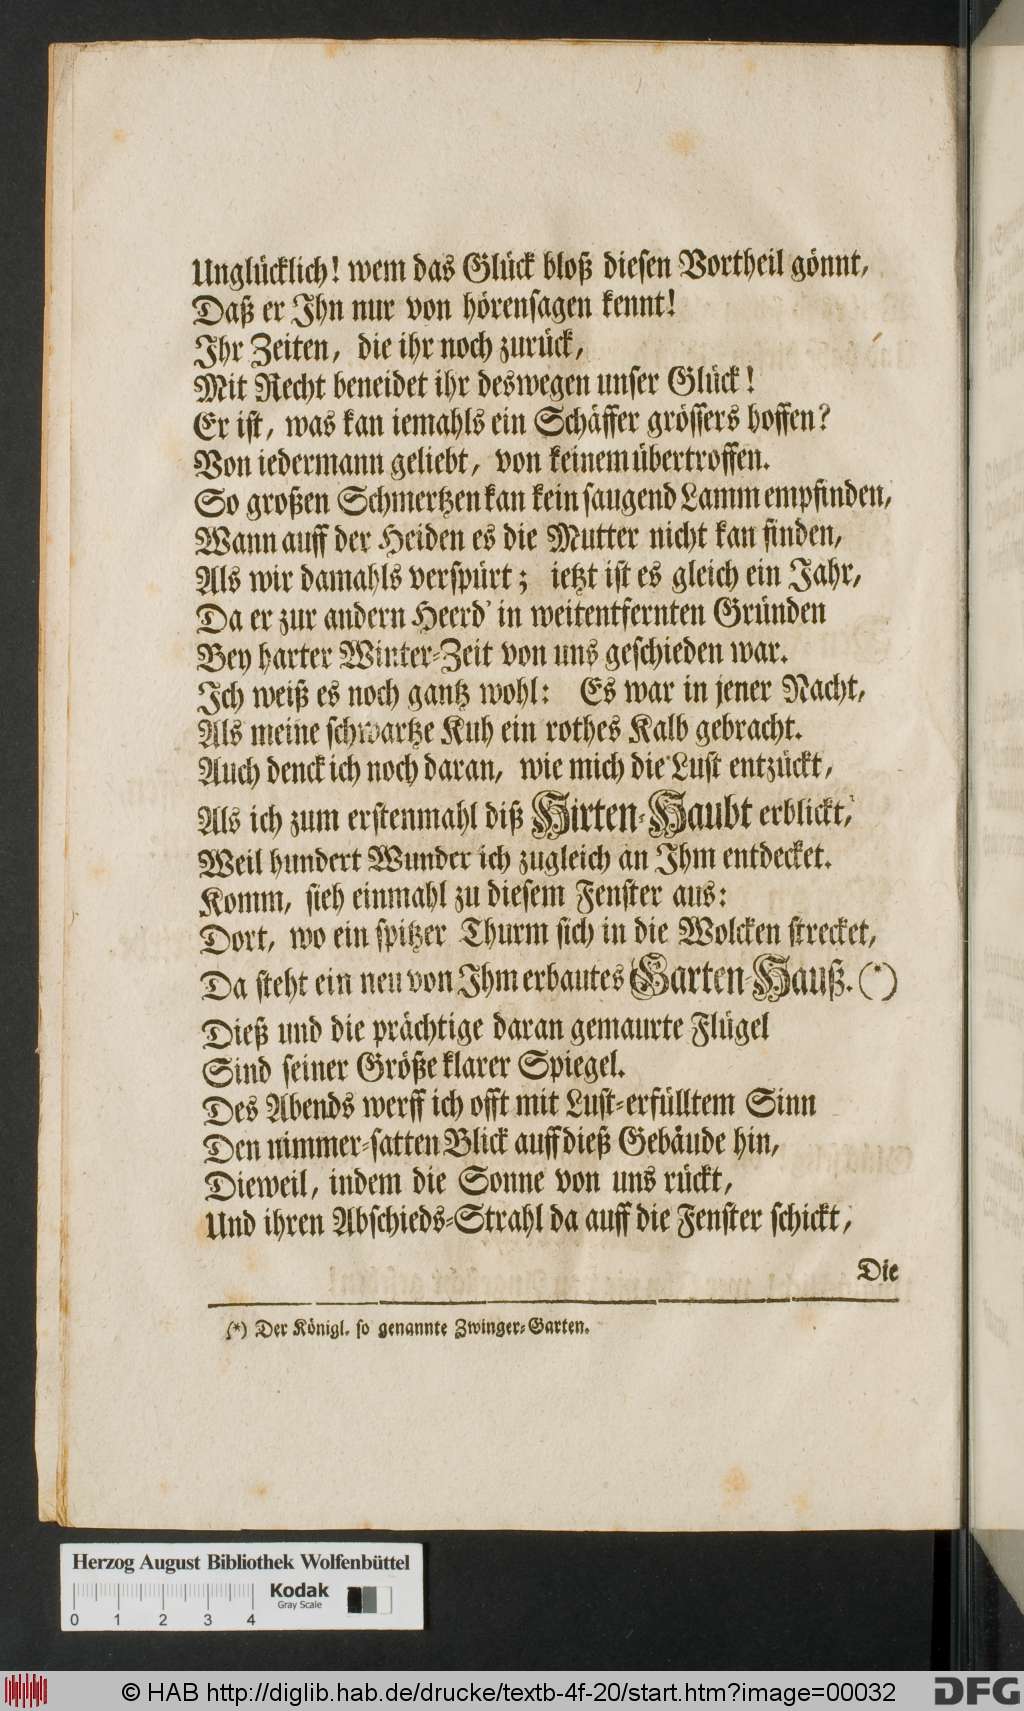 Unglücklich! wem das Glück bloß diesen Vortheil gönnt,
Daß er Ihn nur von hörensagen kennt!
Ihr Zeiten, die ihr noch zurück,
Mit Recht beneidet ihr deswegen unser Glück!
Er ist, was kan iemahls ein Schäffer grössers hoffen?
Von iedermann geliebt, von keinem übertroffen.
So großen Schmertzen kan kein saugend Lamm empfinden,
Wann auff der Heiden es die Mutter nicht kan finden,
Als wir damahls verspürt; ietzt ist es gleich ein Jahr,
Da er zur andern Heerd' in weitentfernten Gründen
Bey harter Winter-Zeit von uns geschieden war.
Ich weiß es noch gantz wohl: Es war in jener Nacht,
Als meine schwartze Kuh ein rothes Kalb gebracht.
Auch denck ich noch daran, wie mich die Lust entzückt,
Als ich zum erstenmahl diß Hirten-Haubt erblickt,
Weil hundert Wunder ich zugleich an Ihm entdecket.
Komm, sieh einmahl zu diesem Fenster aus:
Dort, wo ein spitzer Thurm sich in die Wolcken strecket,
Da steht ein neu von Ihm erbautes Garten-Hauß. (*)
Dieß und die prächtige daran gemaurte Flügel
Sind seiner Größe klarer Spiegel.
Des Abends werff ich offt mit Lust-erfülltem Sinn
Den nimmer-satten Blick auff dieß Gebäude hin,
Dieweil, indem die Sonne von uns rückt,
Und ihren Abschieds-Strahl da auff die Fenster schickt,
Die
(*) Der Königl. so genannte Zwinger-Garten.
Herzog August Bibliothek Wolfenbüttel
Kodak
Gray Scale
0 1 2 3 4
© HAB http://diglib.hab.de/drucke/textb-4f-20/start.htm?image=00032
DFG